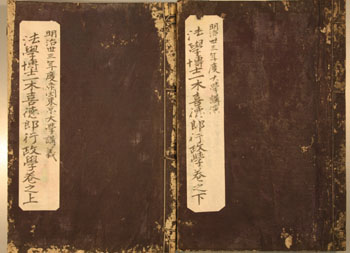 明治卅三年度帝国東京大學講義
法學博士一木喜徳郎行政學卷之上
明治卅三年度大學講演
法學博士一木喜徳郎行政學卷之下